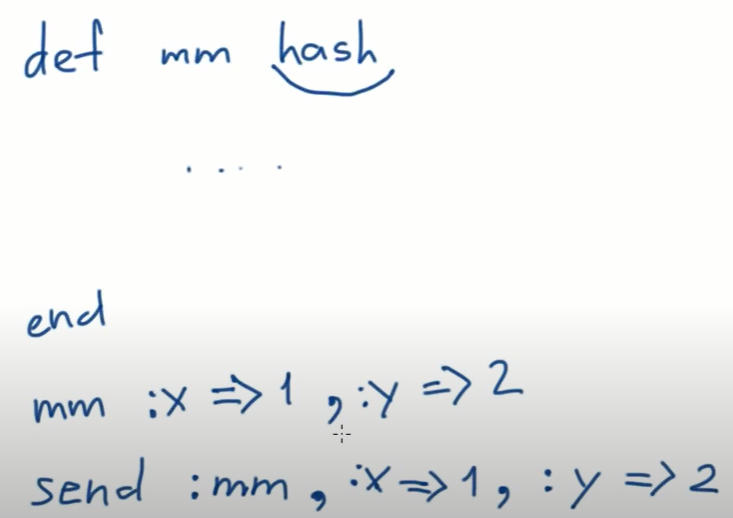 def mm hash
. . . .
end
mm :x => 1 , :y => 2
send :mm , :x => 1 , :y => 2